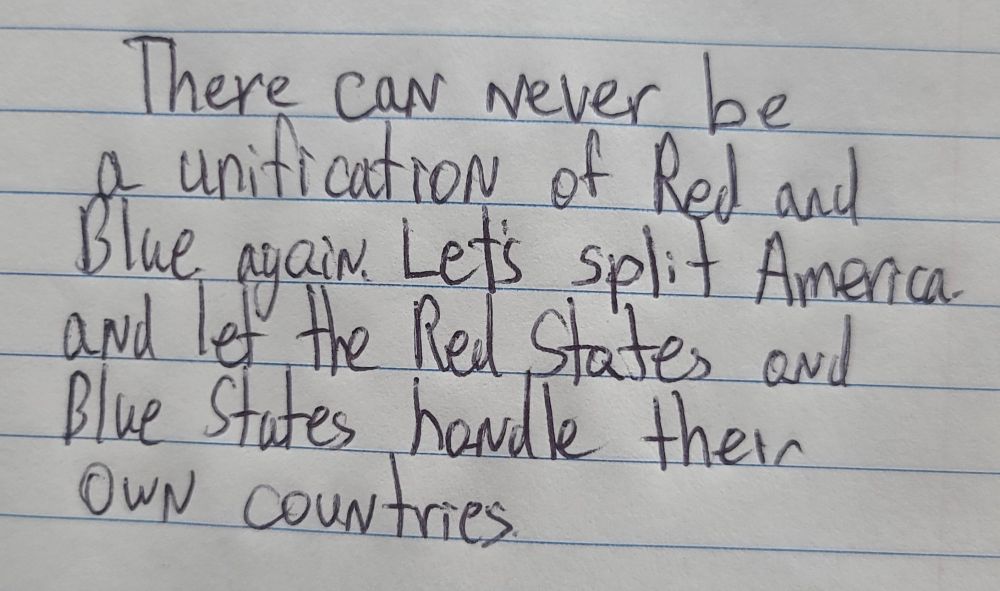 There can never be
a unification of Red and
Blue again. Let's split America
and let the Red States and
Blue States handle their
own countries.